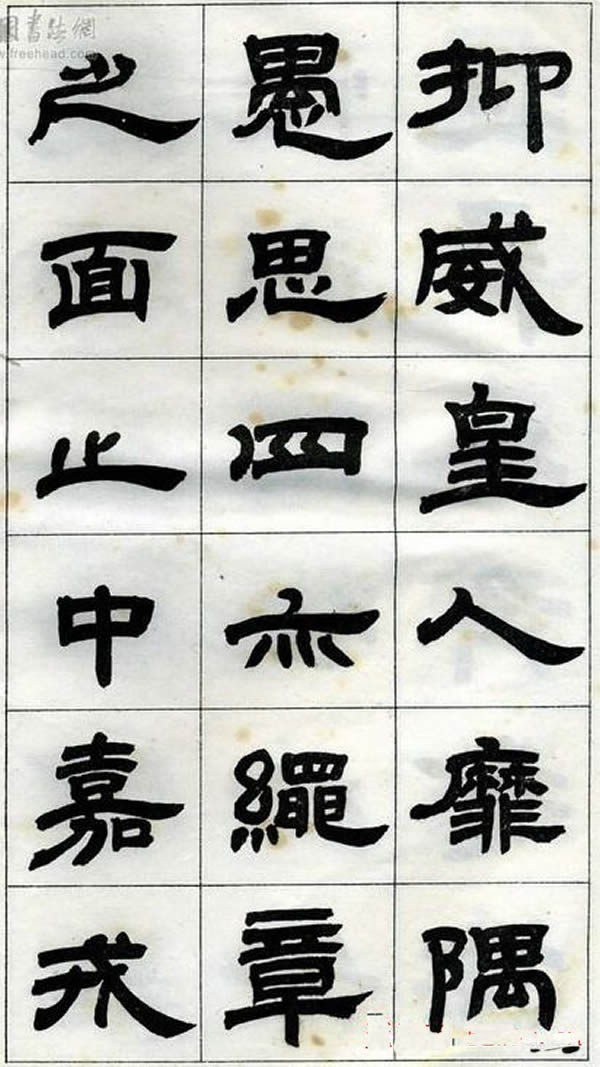 抑威皇人靡隅
愚思四亦繩章
之面止中嘉戎
書法網
www.freehead.com